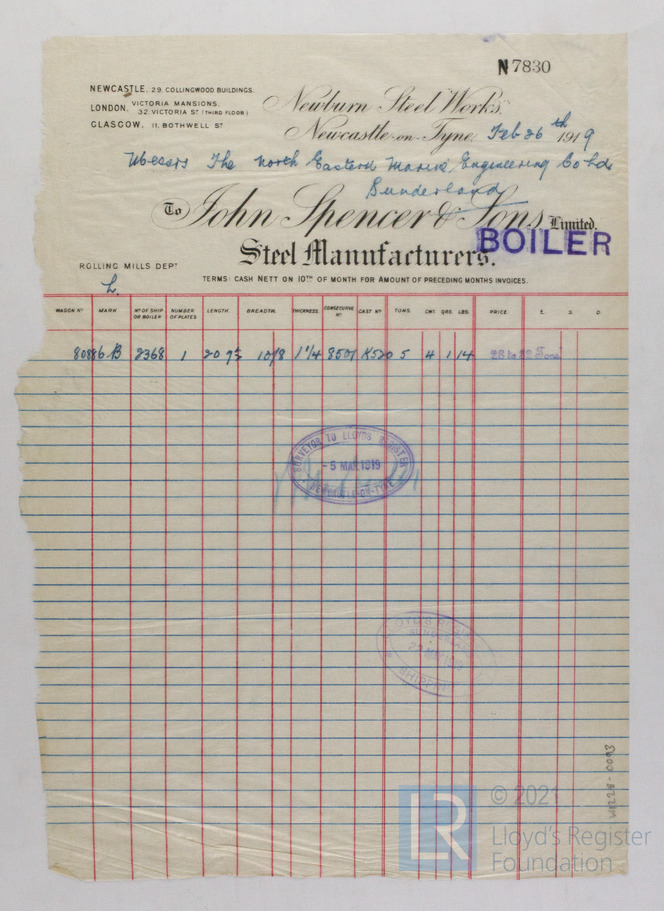 N 7830
NEWCASTLE, 29. COLLINGWOOD BUILDINGS.
LONDON, VICTORIA MANSIONS.
32. VICTORIA ST (THIRD FLOOR)
GLASGOW, 11. BOTHWELL ST
Newburn Steel Works,
Newcastle-on-Tyne, Feb 26th 1919
Messrs The North Eastern Marine Engineering Co Ltd
Sunderland
To John Spencer & Sons, Limited.
Steel Manufacturers.
BOILER
ROLLING MILLS DEPT
TERMS: CASH NETT ON 10TH OF MONTH FOR AMOUNT OF PRECEDING MONTHS INVOICES.
L.
WAGON NO MARK NO OF SHIP OR BOILER NUMBER OF PLATES LENGTH. BREADTH. THICKNESS CONSECUTIVE NO CAST NO TONS CWT. QRS. LBS. PRICE £. S. D.
80886 B 2368 1 20 9¾ 10/8 1¼ 8501 K520 5 4 1 14 28 to 32 Tons
SURVEYOR TO LLOYD'S REGISTER
- 5 MAR. 1919
NEWCASTLE-ON-TYNE
LLOYD'S
SUNDERLAND
SHIPPING
W1228-0093
© 2021
LR
Lloyd's Register
Foundation